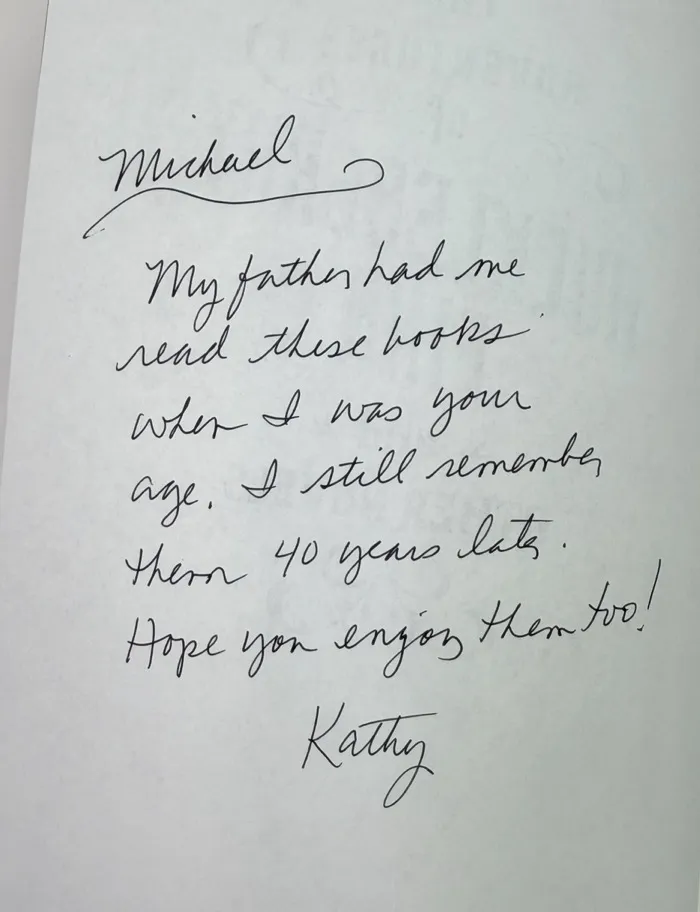 Michael
My father had me
read these books
when I was your
age. I still remember
them 40 years later.
Hope you enjoy them too!
Kathy